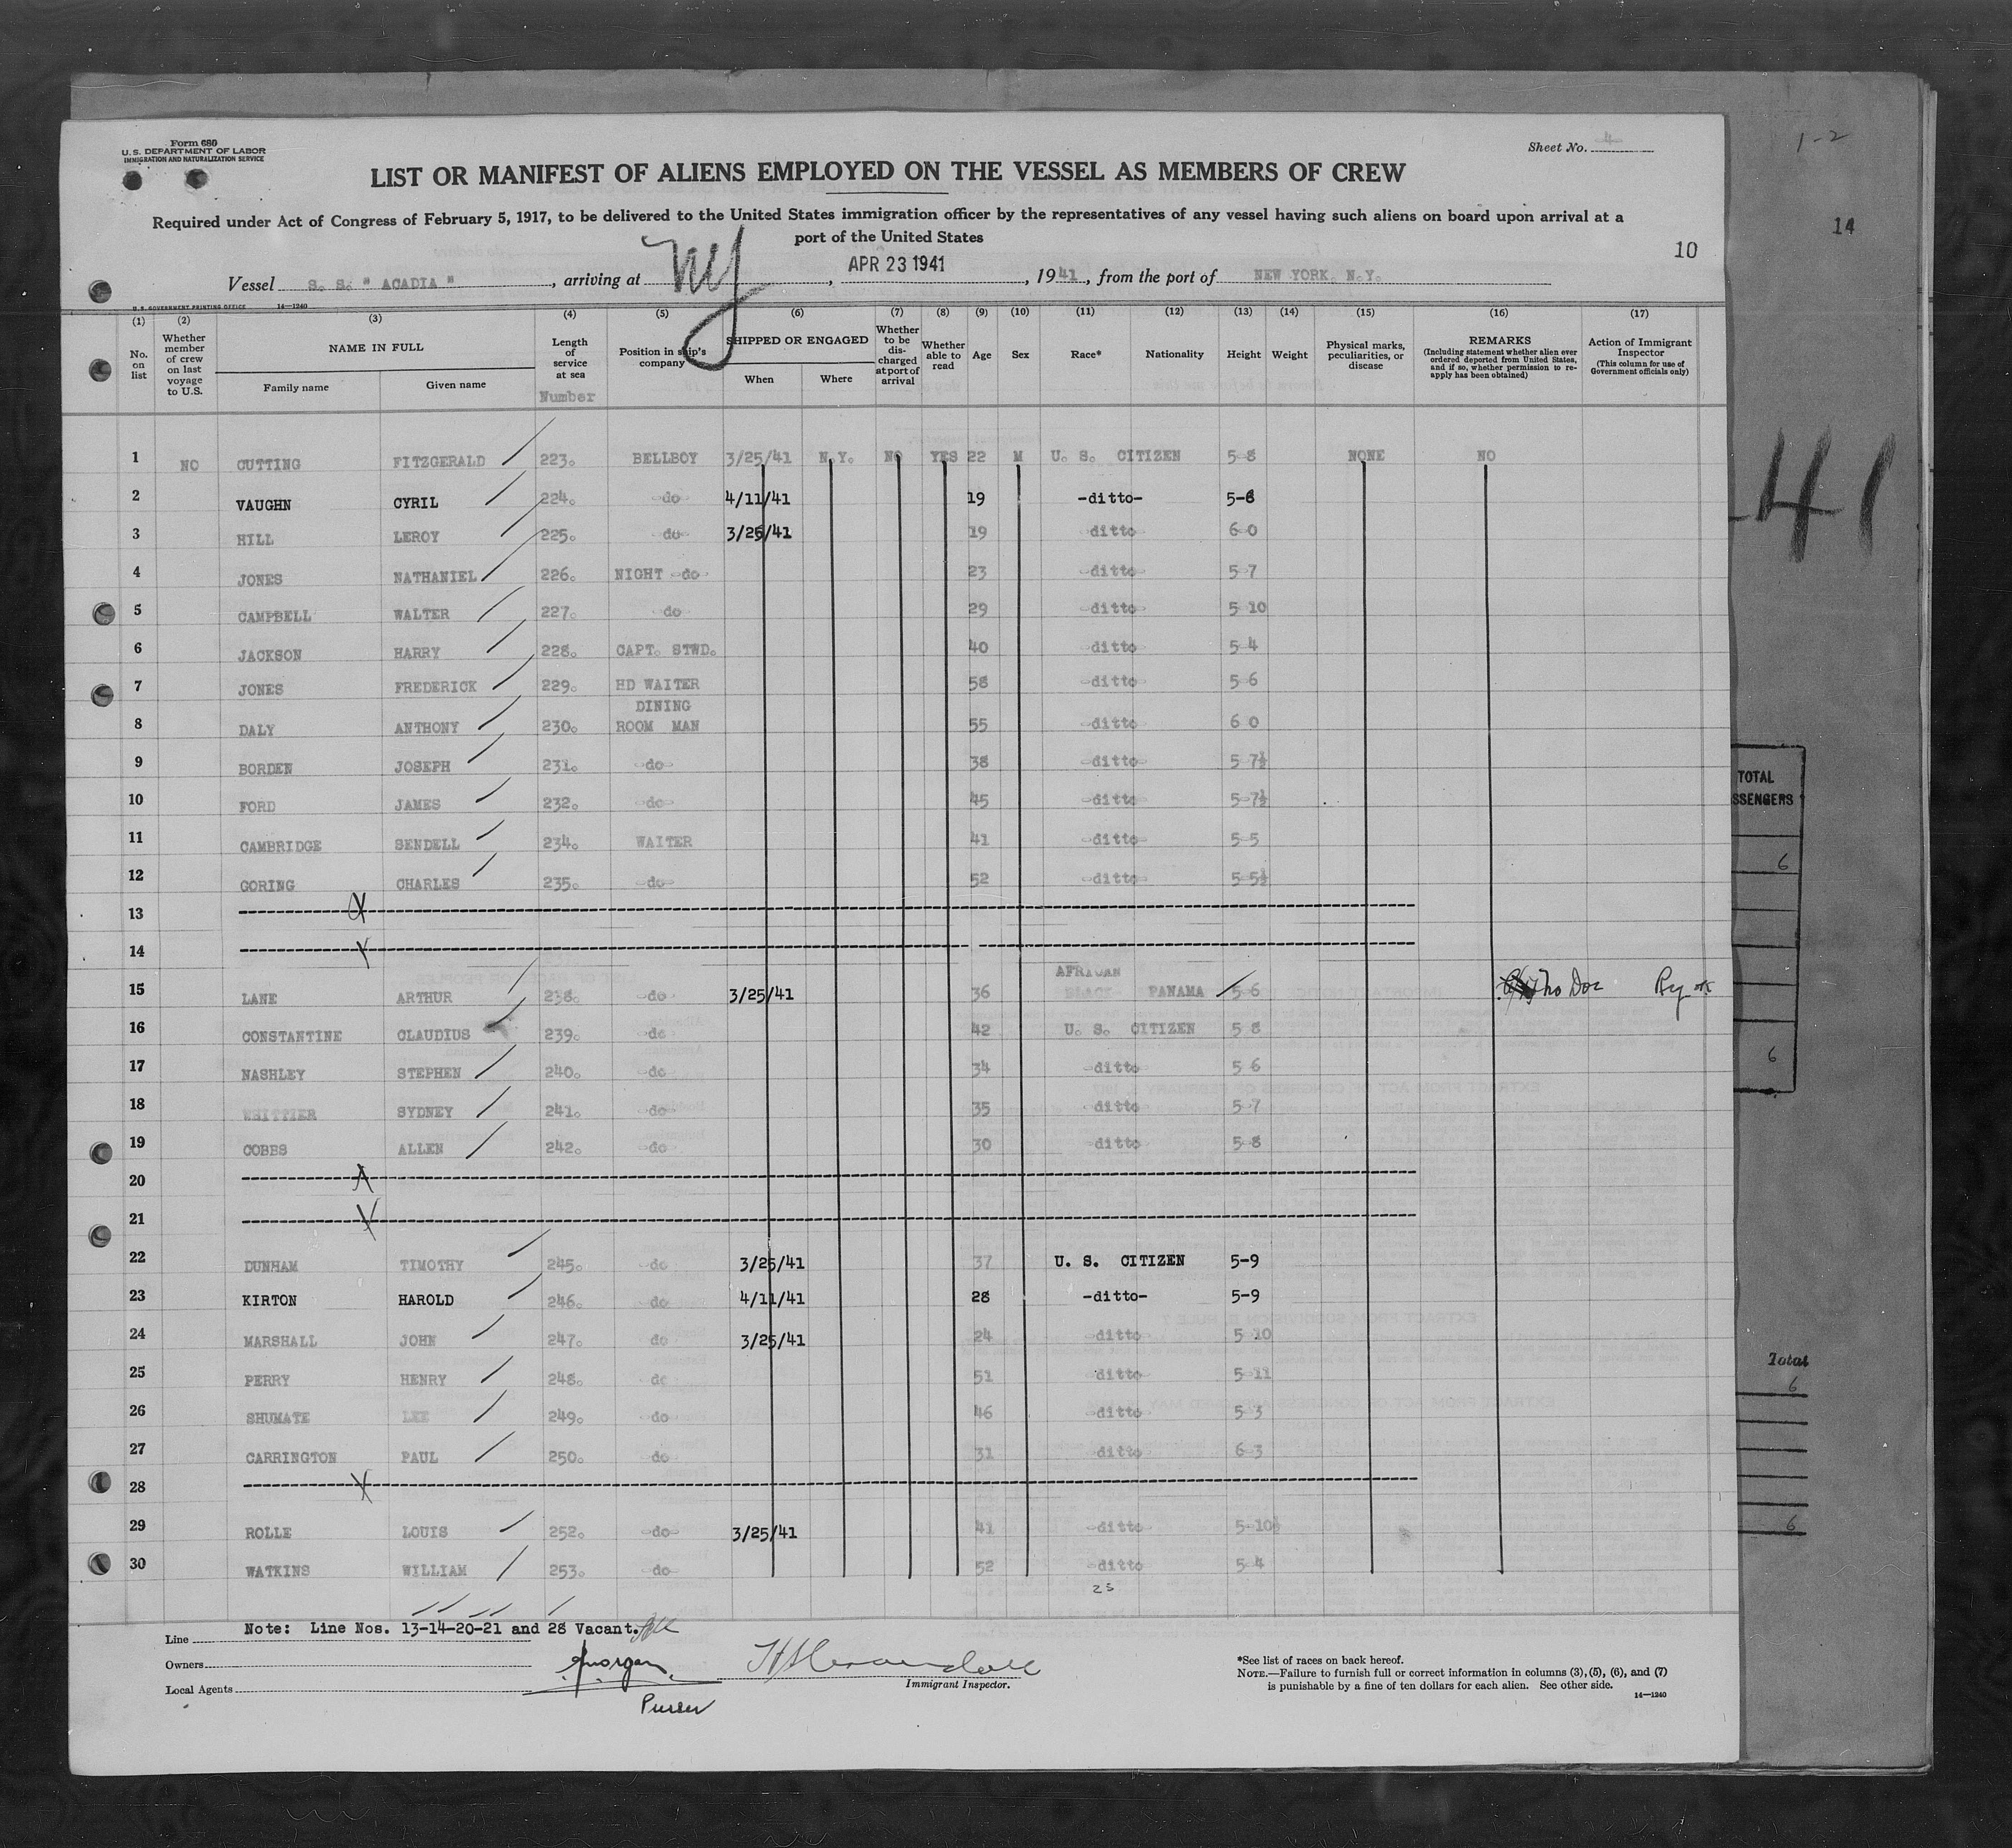 Form 680
U. S. DEPARTMENT OF LABOR
IMMIGRATION AND NATURALIZATION SERVICE
Sheet No. 4
1-2
LIST OR MANIFEST OF ALIENS EMPLOYED ON THE VESSEL AS MEMBERS OF CREW
Required under Act of Congress of February 5, 1917, to be delivered to the United States immigration officer by the representatives of any vessel having such aliens on board upon arrival at a
port of the United States
14
10
Vessel S. S. " ACADIA ", arriving at NY, APR 23 1941, 1941, from the port of NEW YORK, N.Y.
U. S. GOVERNMENT PRINTING OFFICE 14—1240
(1) (2) (3) (4) (5) (6) (7) (8) (9) (10) (11) (12) (13) (14) (15) (16) (17)
No. on list
Whether member of crew on last voyage to U.S.
NAME IN FULL
Family name Given name
Length of service at sea
Number
Position in ship's company
SHIPPED OR ENGAGED
When Where
Whether to be discharged at port of arrival
Whether able to read
Age Sex Race* Nationality Height Weight
Physical marks, peculiarities, or disease
REMARKS
(Including statement whether alien ever ordered deported from United States, and if so, whether permission to reapply has been obtained)
Action of Immigrant Inspector
(This column for use of Government officials only)
1 NO CUTTING FITZGERALD 223. BELLBOY 3/25/41 N.Y. NO YES 22 M U. S. CITIZEN 5-8 NONE NO
2 VAUGHN CYRIL 224. -do- 4/11/41 19 -ditto- 5-8
3 HILL LEROY 225. do- 3/25/41 19 -ditto- 6-0
4 JONES NATHANIEL 226. NIGHT -do- 23 -ditto- 5-7
5 CAMPBELL WALTER 227. do- 29 -ditto- 5-10
6 JACKSON HARRY 228. CAPT. STWD. 40 -ditto- 5-4
7 JONES FREDERICK 229. HD WAITER 58 -ditto- 5-6
8 DALY ANTHONY 230. DINING ROOM MAN 55 -ditto- 6-0
9 BORDEN JOSEPH 231. -do- 38 -ditto- 5-7½
10 FORD JAMES 232. -do- 45 -ditto- 5-7½
11 CAMBRIDGE SENDELL 234. WAITER 41 -ditto- 5-5
12 GORING CHARLES 235. -do- 52 -ditto- 5-5½
13 X
14 X
15 LANE ARTHUR 238. -do- 3/25/41 36 AFRICAN BLACK- PANAMA 5-6 no Doc
16 CONSTANTINE CLAUDIUS 239. -do- 42 U. S. CITIZEN 5-8
17 NASHLEY STEPHEN 240. -do- 34 -ditto- 5-6
18 WHITTIER SYDNEY 241. -do- 35 -ditto- 5-7
19 COBBS ALLEN 242. -do- 30 -ditto- 5-8
20 X
21 X
22 DUNHAM TIMOTHY 245. do 3/25/41 37 U. S. CITIZEN 5-9
23 KIRTON HAROLD 246. do 4/11/41 28 -ditto- 5-9
24 MARSHALL JOHN 247. do 3/25/41 24 -ditto- 5-10
25 PERRY HENRY 248. do 51 -ditto- 5-11
26 SHUMATE LEE 249. -do 46 -ditto- 5-3
27 CARRINGTON PAUL 250. do- 31 -ditto- 6-3
28 X
29 ROLLE LOUIS 252. -do- 3/25/41 41 -ditto- 5-10½
30 WATKINS WILLIAM 253. -do- 52 -ditto- 5-4
25
Note: Line Nos. 13-14-20-21 and 28 Vacant.
Line
Owners
Local Agents
Morgan
Purser
Immigrant Inspector.
*See list of races on back hereof.
NOTE.—Failure to furnish full or correct information in columns (3), (5), (6), and (7)
is punishable by a fine of ten dollars for each alien. See other side.
14—1240
-41
TOTAL
SSENGERS
6
6
Total
6
6